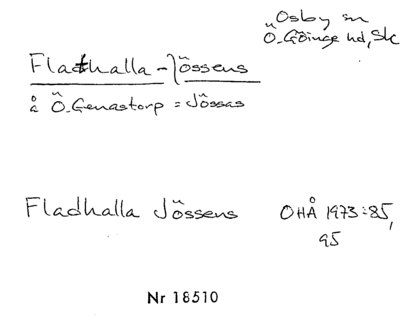 Osby sn
Ö. Göinge hd, Sk
Flathalla-Jössens
å Ö. Genastorp = Jössas
Fladhalla Jössens OHÅ 1973:85,
95
Nr 18510